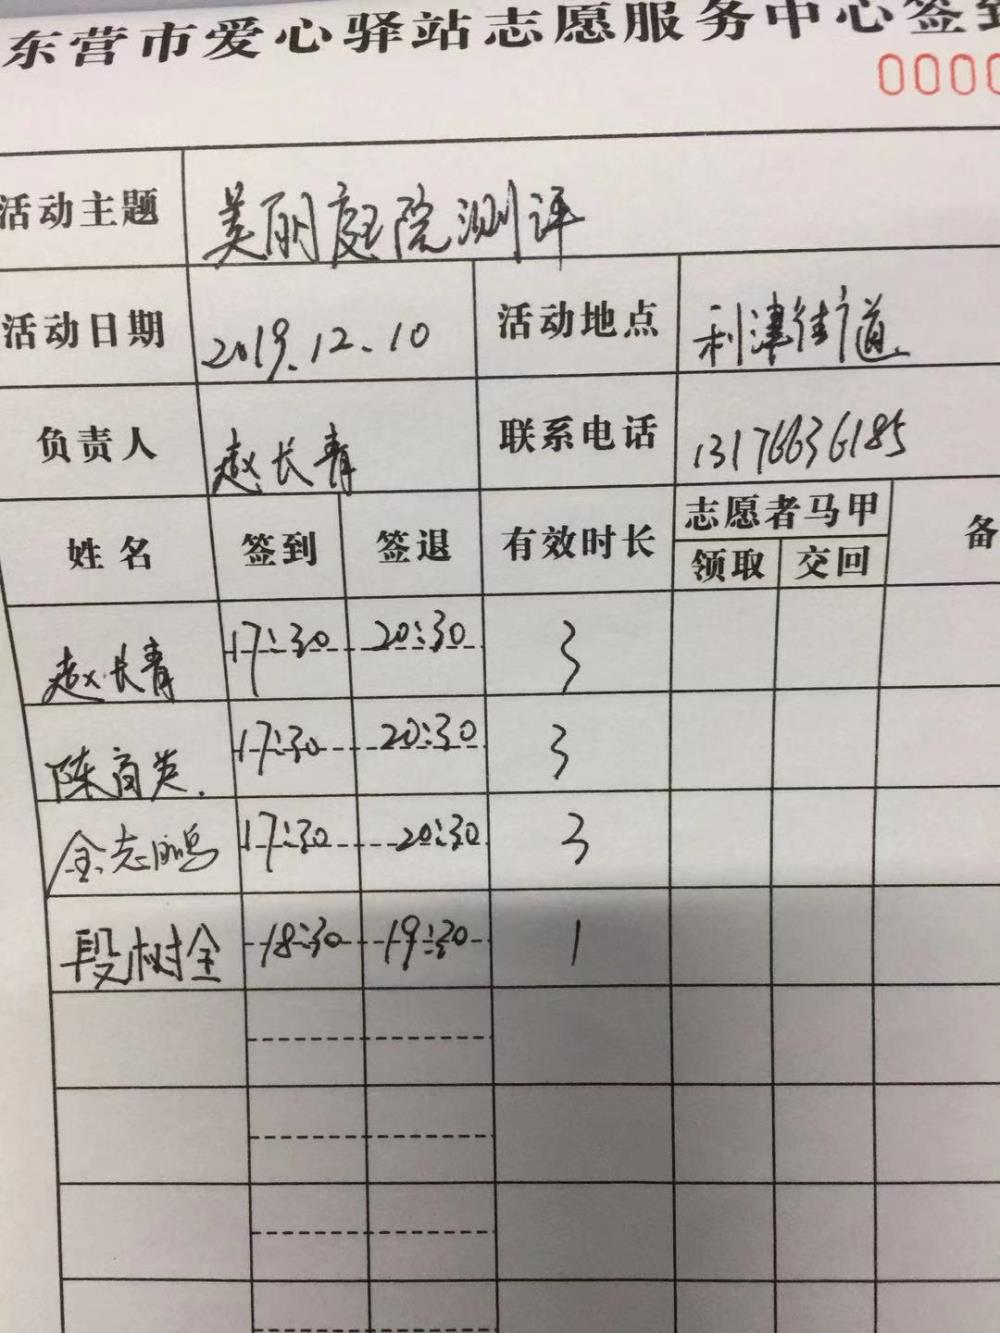 东营市爱心驿站志愿服务中心签到
0000
活动主题 美丽庭院测评
活动日期 2019.12.10 活动地点 利津街道
负责人 赵长青 联系电话 13176636185
姓名 签到 签退 有效时长 志愿者马甲 备
领取 交回
赵长青 17:30 20:30 3
陈商英 17:30 20:30 3
金志鹏 17:30 20:30 3
段树全 18:30 19:30 1